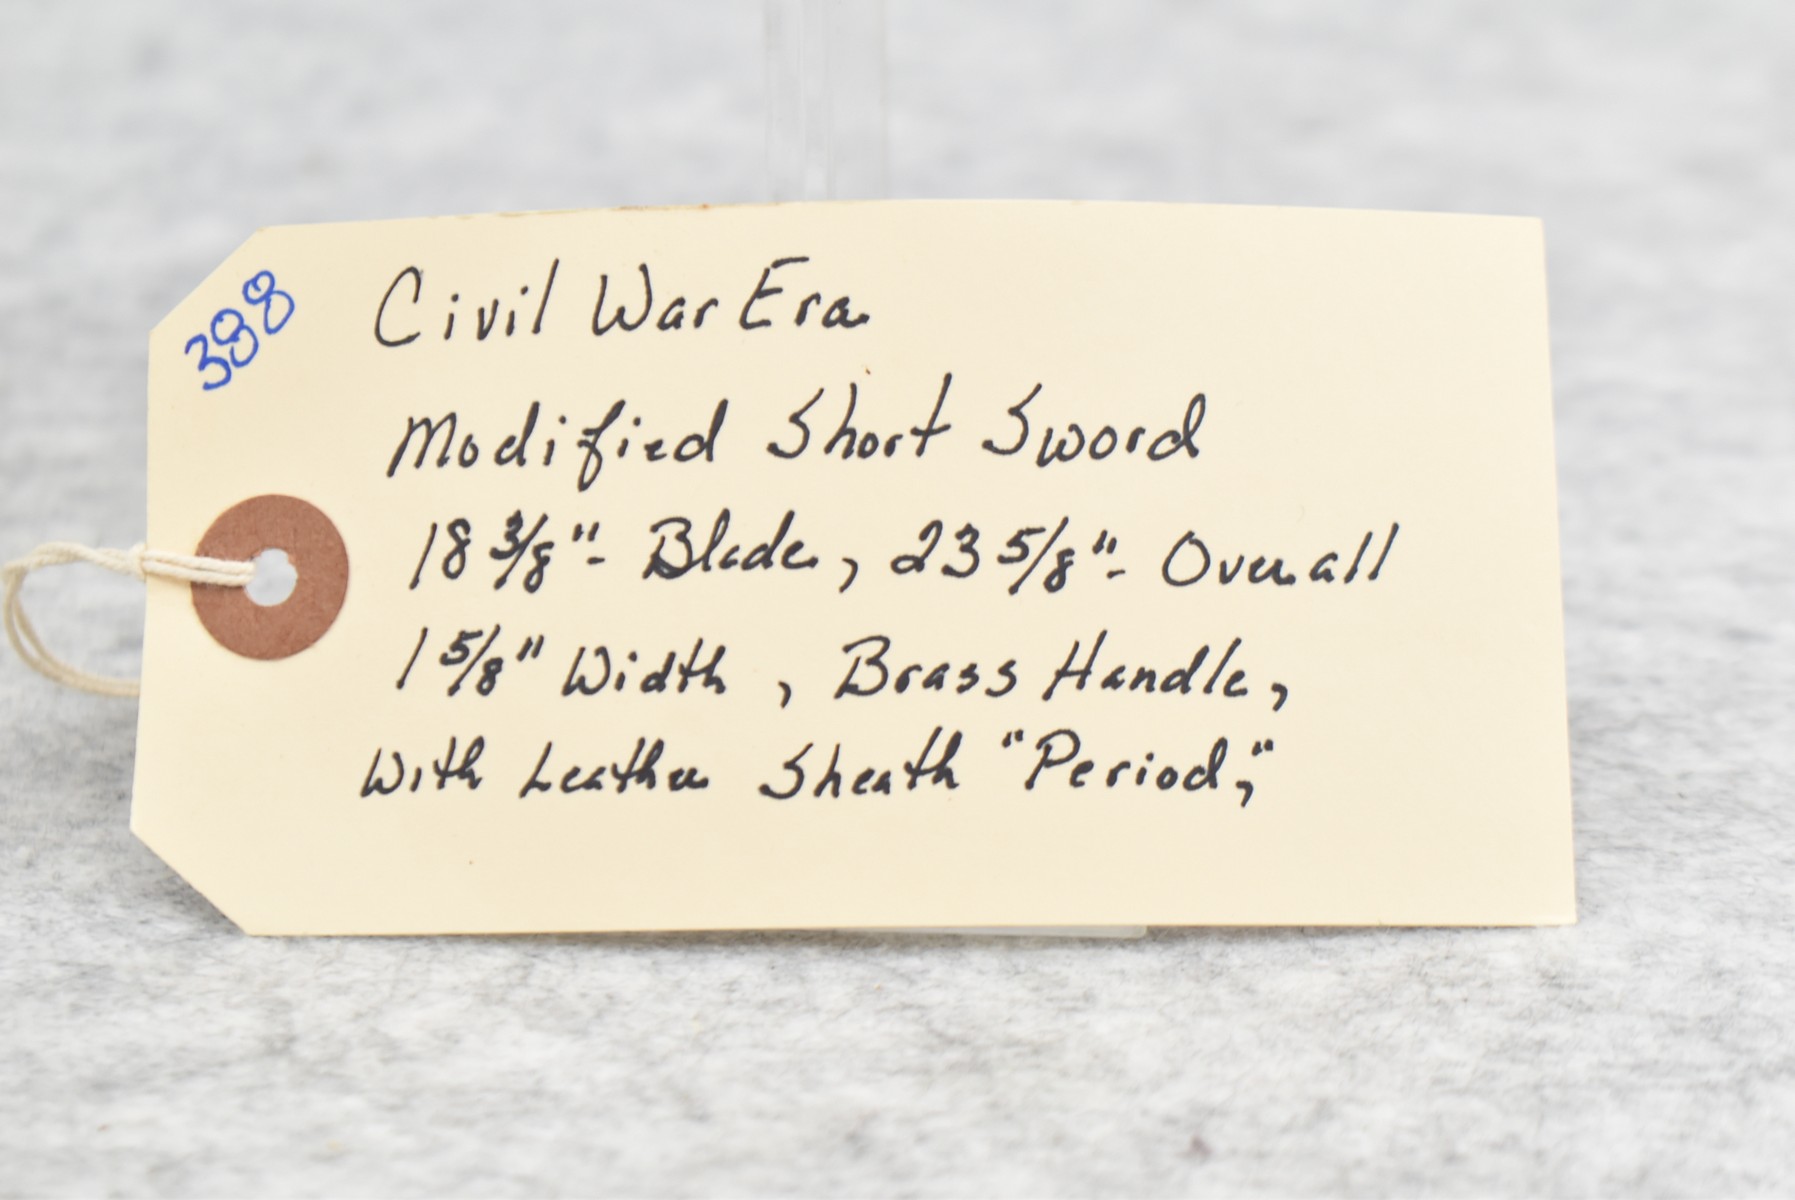 388
Civil War Era
Modified Short Sword
18 3/8"- Blade, 23 5/8"- Overall
1 5/8" Width, Brass Handle,
With Leather Sheath "Period,"